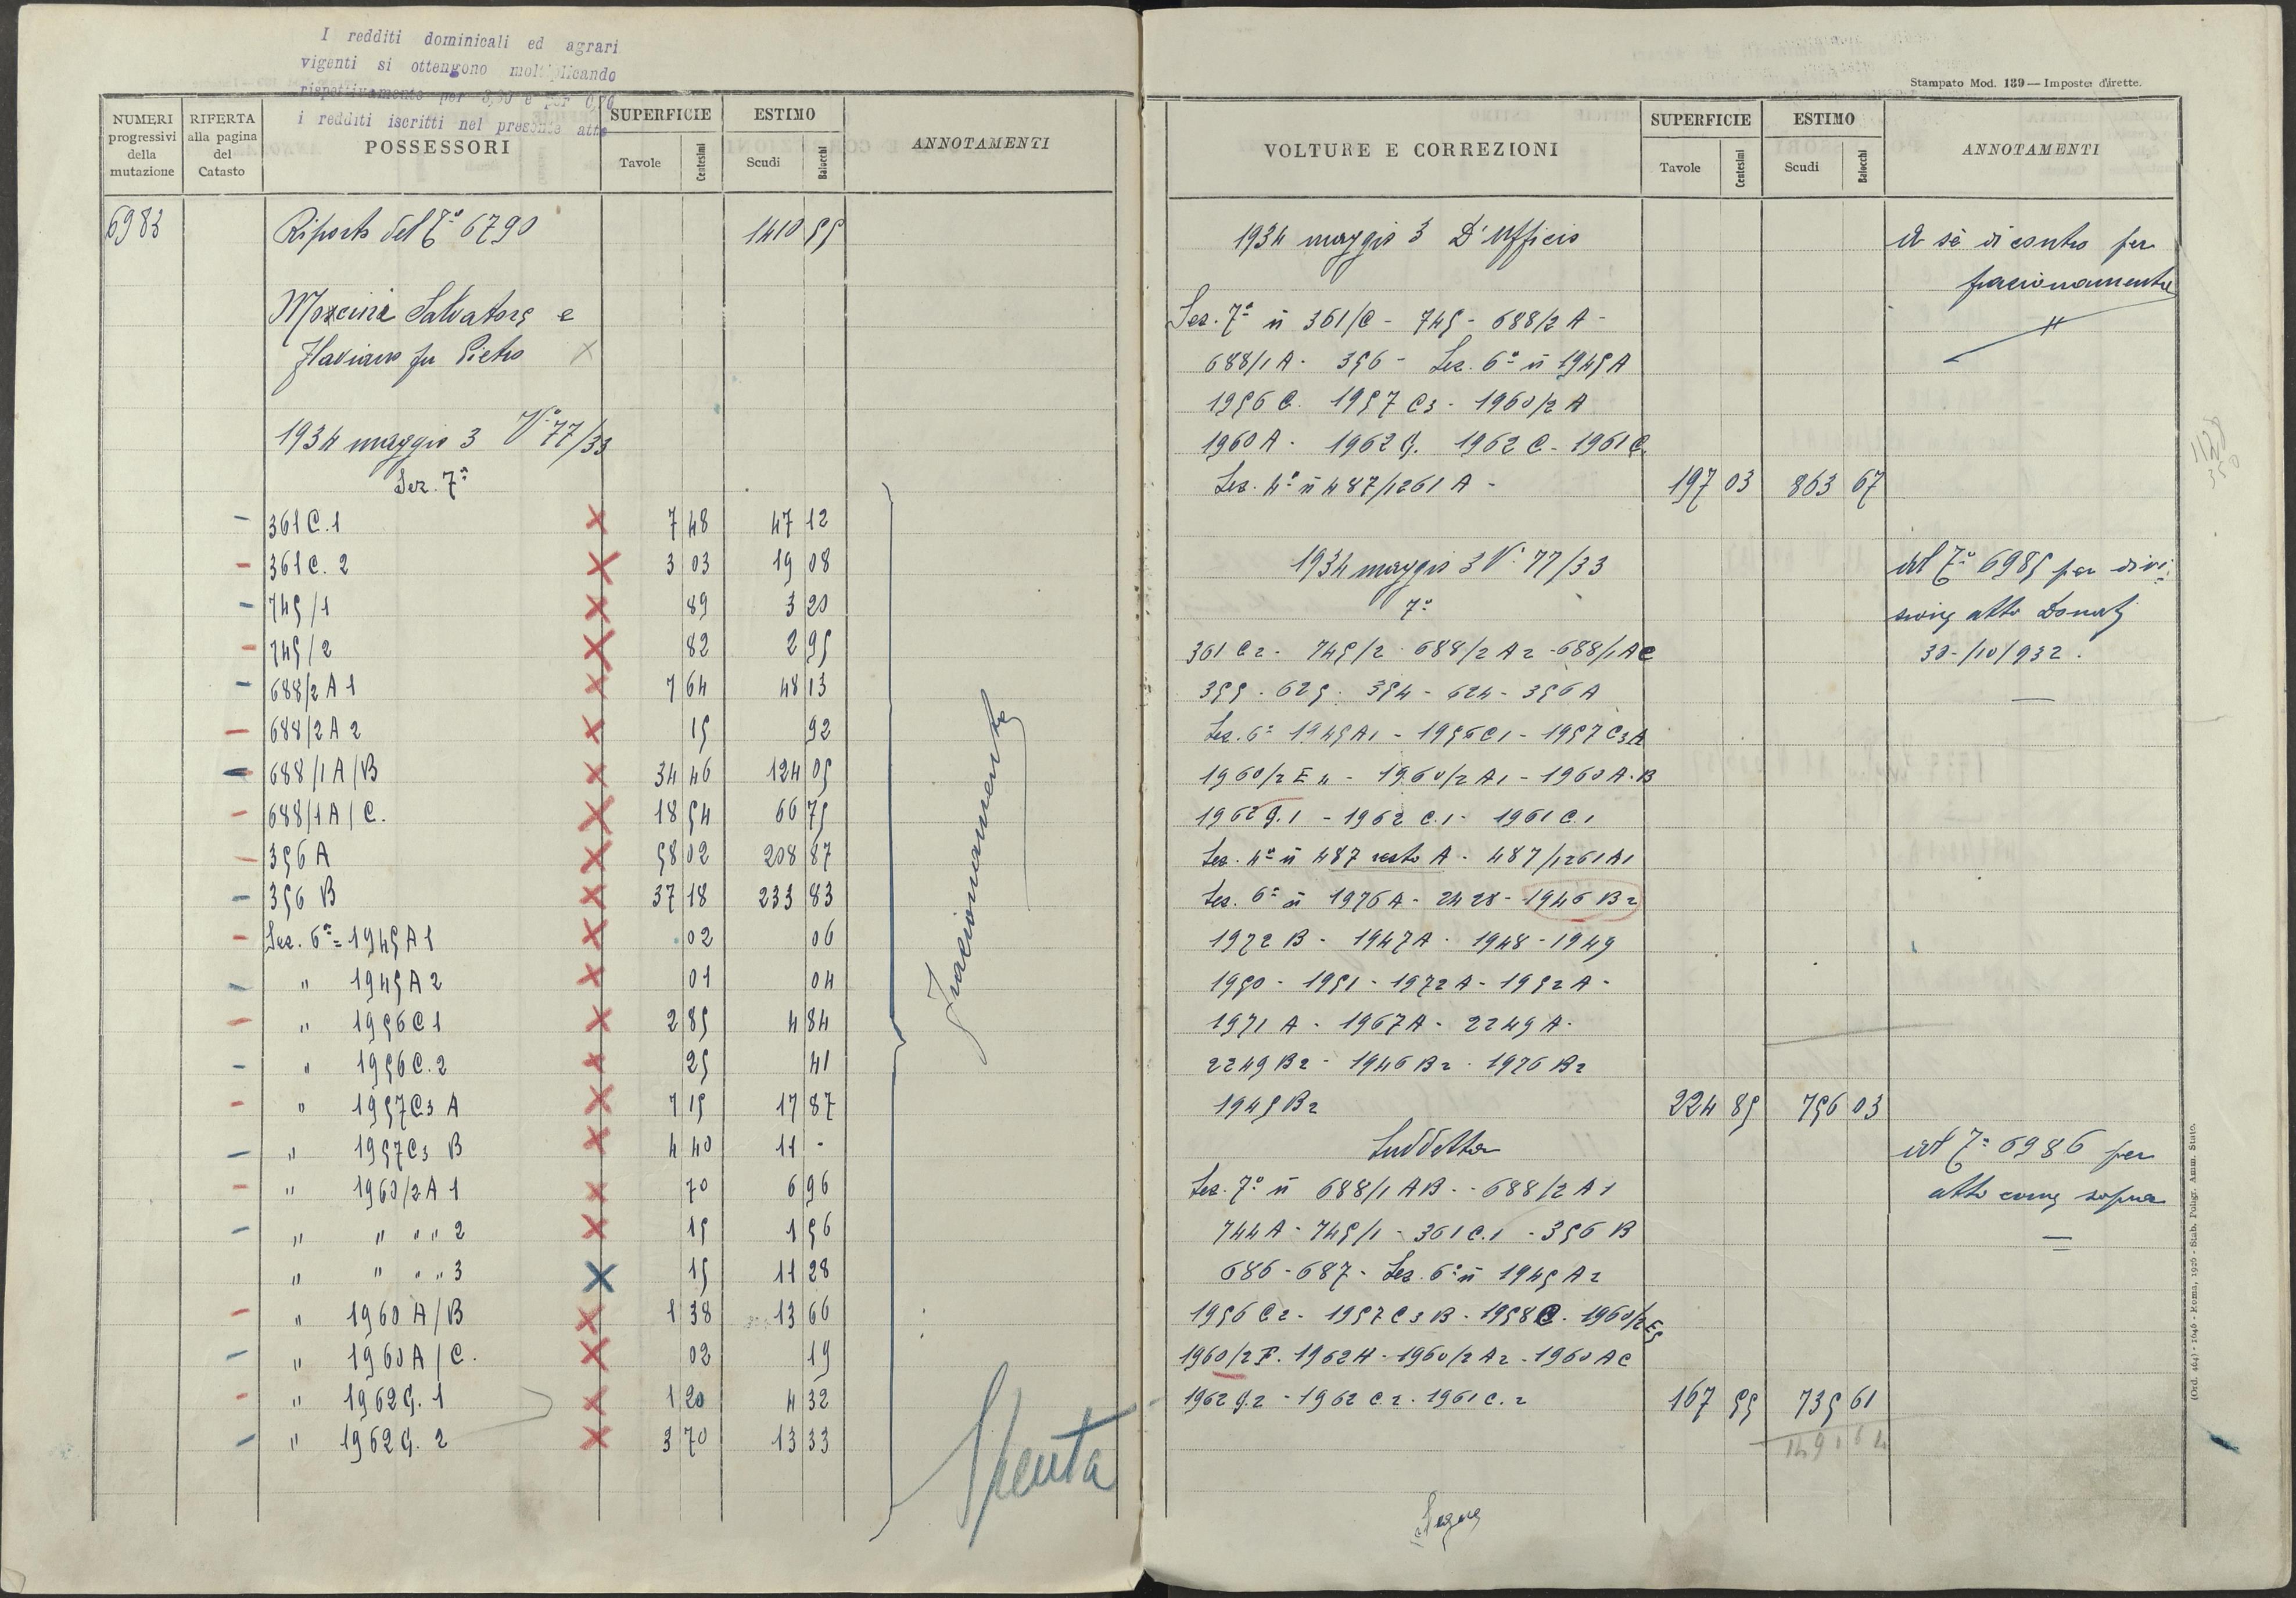 I redditi dominicali ed agrari
vigenti si ottengono moltiplicando
rispettivamente per 3,50 e per 0,76
i redditi iscritti nel presente atto
NUMERI progressivi della mutazione
RIFERTA alla pagina del Catasto
POSSESSORI
SUPERFICIE
Tavole Centesimi
ESTIMO
Scudi Baiocchi
ANNOTAMENTI
6983 Riporto del T.º 6790 1410 55
Salvatore e
Flaviano fu Pietro X
1934 maggio 3 Vª 77/33
Sez. 7ª
- 361 C.1 X 7 48 47 12
- 361 C. 2 X 3 03 19 08
- 745/1 X 89 3 20
- 745/2 X 82 2 95
- 688/2 A 1 X 7 64 48 13
- 688/2 A 2 X 15 92
- 688/1 A/B X 34 46 124 05
- 688/1 A/C. X 18 54 66 75
- 356 A X 58 02 208 87
- 356 B X 37 18 233 83
- Sez. 6ª = 1945 A 1 X 02 06
- " 1945 A 2 X 01 04
- " 1956 C 1 X 2 85 4 84
- " 1956 C. 2 X 25 41
- " 1957 C3 A X 7 15 17 87
- " 1957 C3 B X 4 40 11 -
- " 1960/2 A 1 X 70 6 96
- " " " " 2 X 15 1 56
" " " " 3 X 15 11 28
- " 1960 A/B X 1 38 13 66
- " 1960 A/C. X 02 19
- " 1962 G. 1 X 1 20 4 32
- " 1962 G. 2 X 3 70 13 33
Frazionamento
Spenta
Stampato Mod. 139 — Imposte dirette.
VOLTURE E CORREZIONI
SUPERFICIE
Tavole Centesimi
ESTIMO
Scudi Baiocchi
ANNOTAMENTI
1934 maggio 3 D'Ufficio
A sè di contro per
frazionamento
Sez. 7ª n 361/C - 745 - 688/2 A -
688/1 A - 356 - Sez. 6ª n 1945 A
1956 C. 1957 C3 - 1960/2 A
1960 A - 1962 G. 1962 C - 1961 C.
Sez. 4ª n 487/1261 A - 197 03 863 67
1934 maggio 3 Vª 77/33
al T.º 6985 per divi-
sione atto Donati
30-/10/932.
7ª
361 C2 - 745/2 - 688/2 A2 - 688/1 A C
355 - 625 - 354 - 624 - 356 A
Sez. 6ª 1945 A1 - 1956 C1 - 1957 C3 A
1960/2 E 4 - 1960/2 A1 - 1960 A-B
1962 G.1 - 1962 C.1 - 1961 C.1
Sez. 4ª n 487 resto A - 487/1261 A1
Sez. 6ª n 1976 A - 2428 - 1946 B2
1972 B - 1947 A - 1948 - 1949
1950 - 1951 - 1972 A - 1952 A -
1971 A - 1967 A - 2249 A -
2249 B2 - 1946 B2 - 1976 B2
1945 B2 224 85 756 03
Suddetta
al T.º 6986 per
atto come sopra
Sez. 7ª n 688/1 AB - 688/2 A1
744 A - 745/1 - 361 C.1 - 356 B
686 - 687 - Sez. 6ª n 1945 A2
1956 C2 - 1957 C3 B - 1958 C - 1960/2 E5
1960/2 F. 1962 H - 1960/2 A2 - 1960 A C
1962 G.2 - 1962 C 2 - 1961 C. 2 167 55 735 61
1491 64
Segue
(Ord. 464) - 1646 - Roma, 1926 - Stab. Poligr. Amm. Stato.